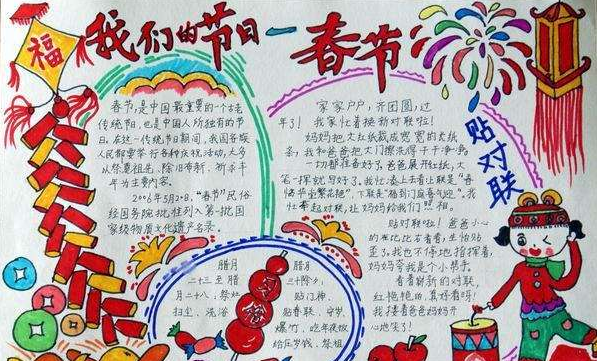 福
我们的节日一春节
春节,是中国最重要的一个古老
传统节,也是中国人所独有的节
日。在这一传统节日期间,我国各族
人民都要举行各种庆祝活动,大多
以祭奠祖先、除旧布新、祈求丰
年为主要内容。
2006年5月20,"春节"民俗
经国务院批准列入第一批国
家级物质文化遗产名录。
家家户户,齐团圆,过
年了!我家忙着换新对联啦!
妈妈把大红纸裁成宽宽的长纸
条;我和爸爸把大门擦洗得干干净净。
一切都准备好了。爸爸展开红纸,大
笔一样就写好了。我忙凑上去看上联是"春
花艳",下联是"福到门庭喜气迎"。我
忙举起对联,让妈妈给我们照相。
贴对联
贴对联啦!爸爸小心
左看右看,生怕贴
歪了。我也不停地指挥着,
妈妈夸我是个小帮手。
看着新的对联
红艳艳的,真好看呀!
我搂着爸爸妈妈开
心地笑了!
腊月
二十三至腊
月二十八:祭灶
扫尘、洗浴
腊月
三十除夕:
贴门神、
贴春联、守岁、
爆竹、吃年夜饭
给压岁钱、祭祖